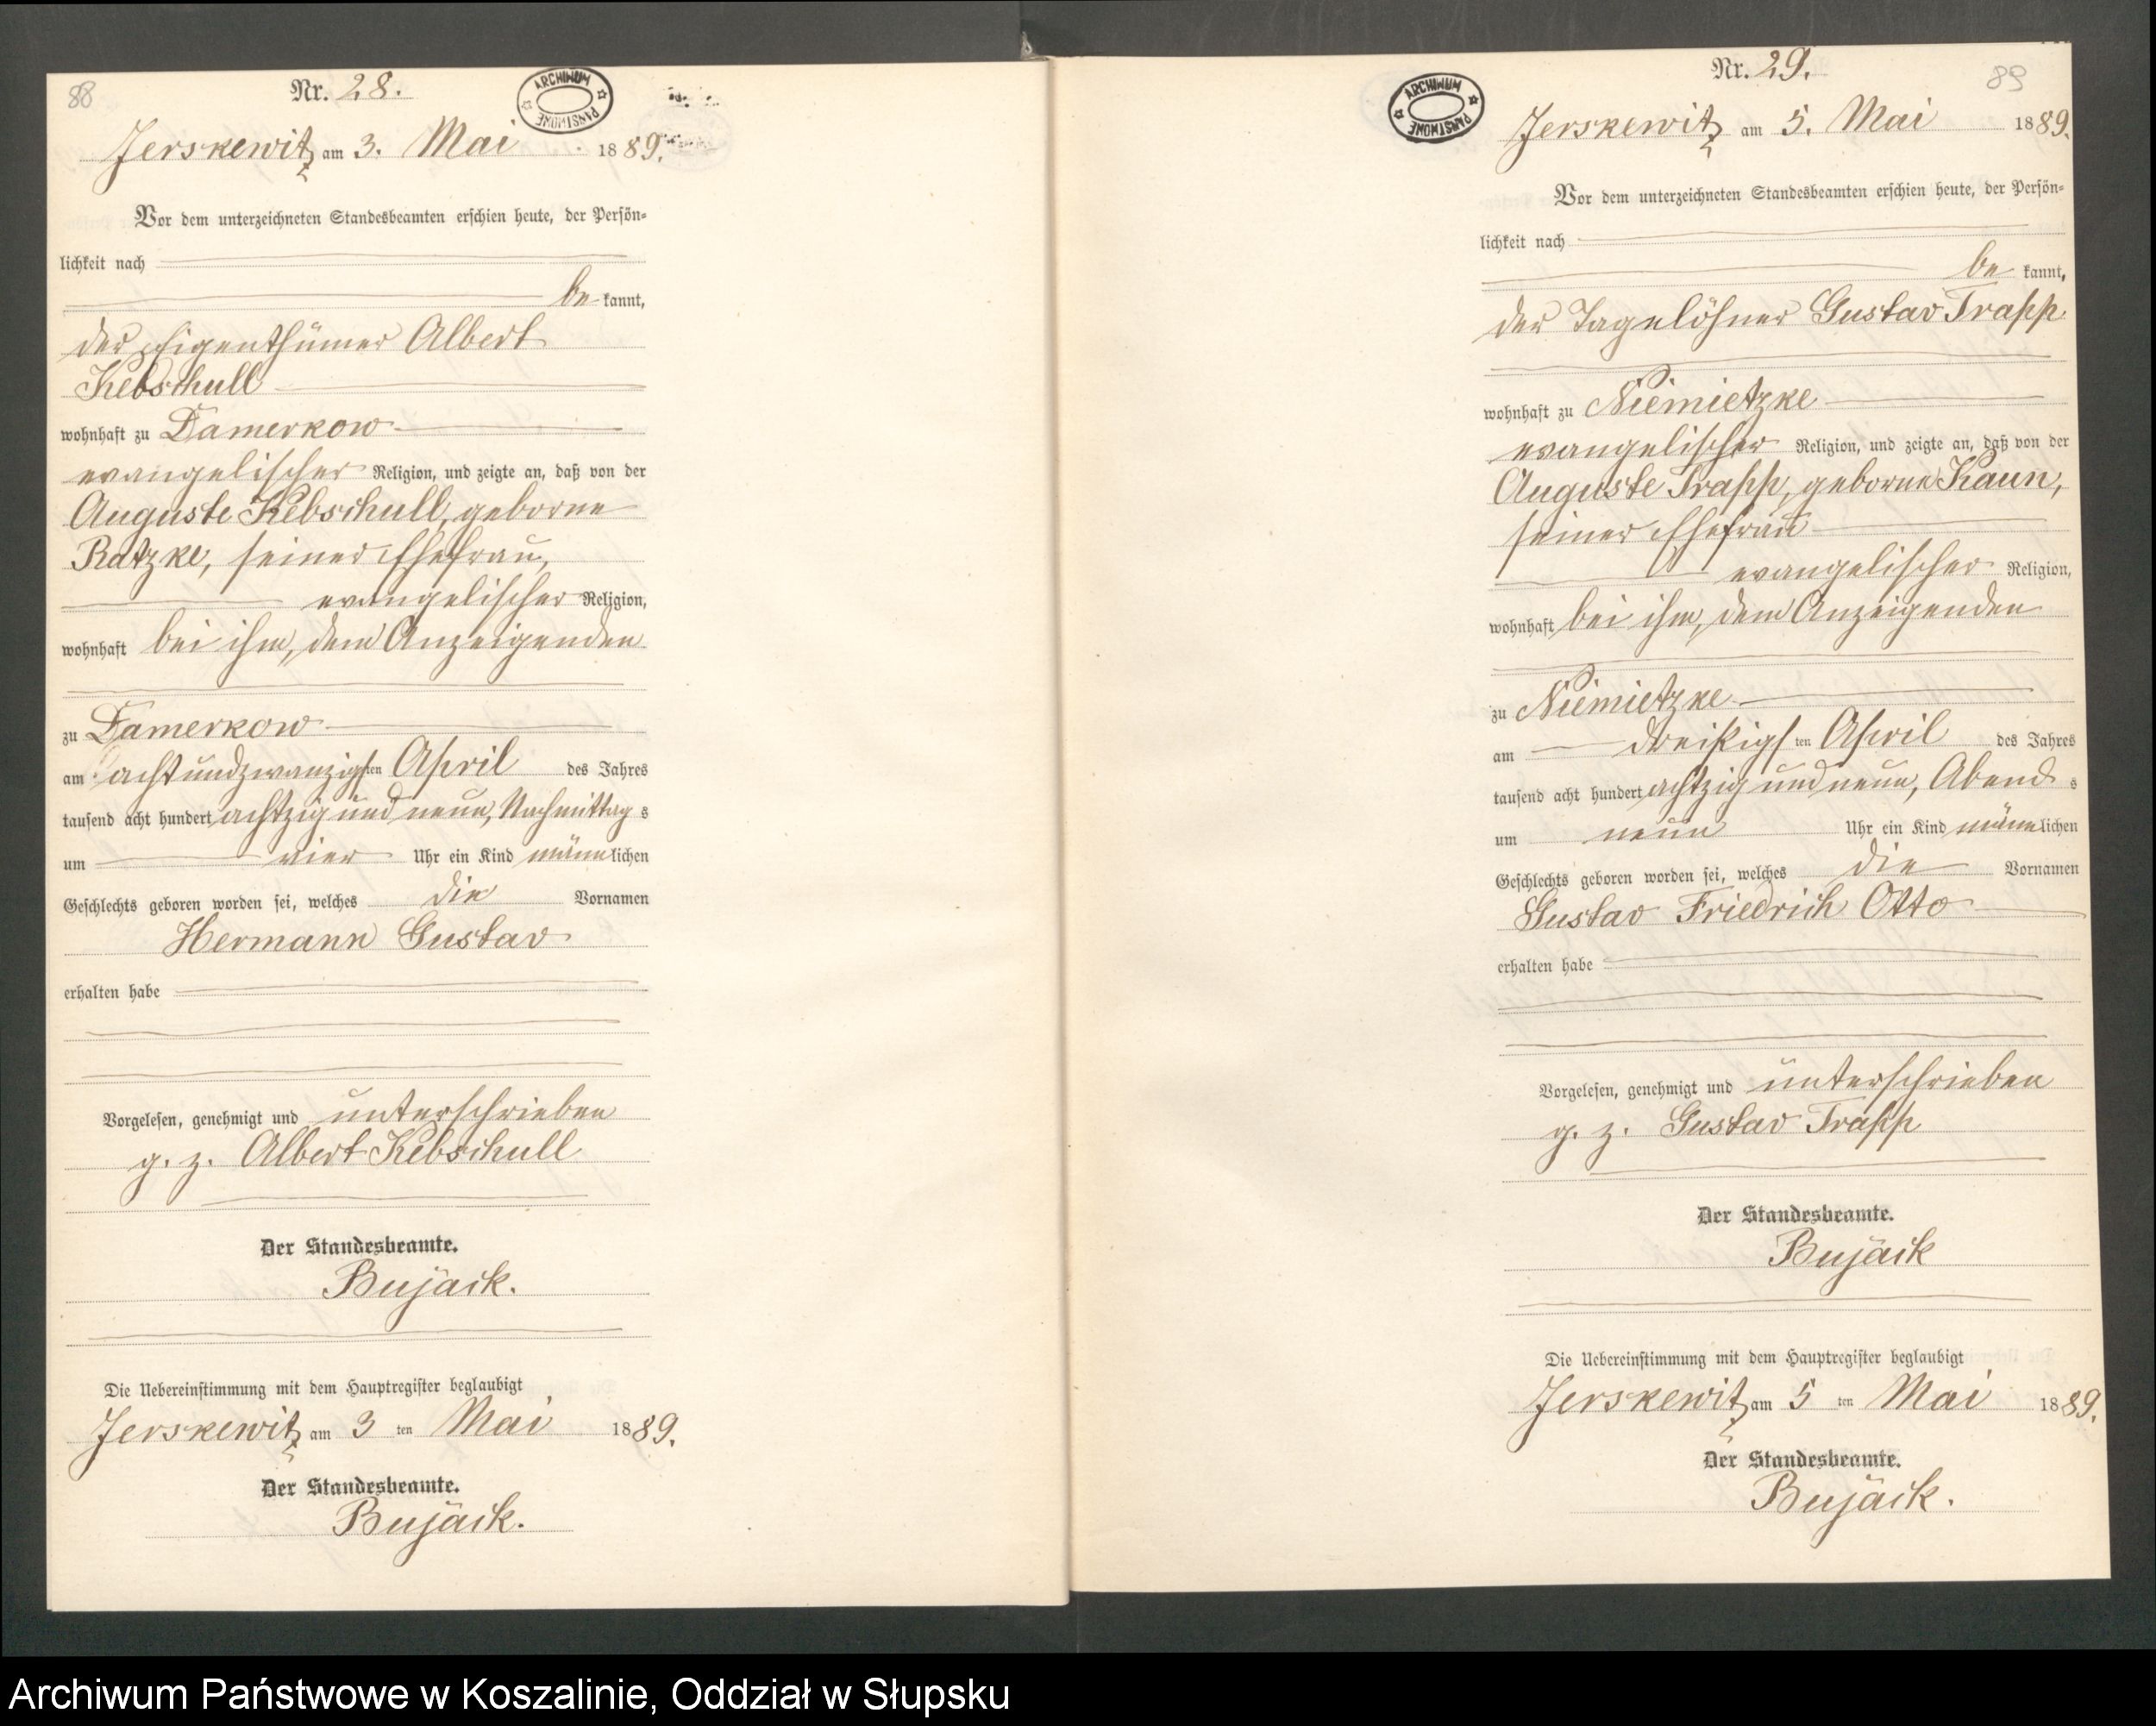 88
Nr. 28.
ARCHIWUM PAŃSTWOWE
Jerskewitz am 3. Mai 1889.
Vor dem unterzeichneten Standesbeamten erschien heute, der Persön-
lichkeit nach
be kannt,
der Eigenthümer Albert
Kebschull
wohnhaft zu Damerkow
evangelischer Religion, und zeigte an, daß von der
Auguste Kebschull, geborne
Ratzke, seiner Ehefrau,
evangelischer Religion,
wohnhaft bei ihm, dem Anzeigenden
zu Damerkow
am achtundzwanzigsten April des Jahres
tausend acht hundert achtzig und neun, Nachmittags
um vier Uhr ein Kind männlichen
Geschlechts geboren worden sei, welches die Vornamen
Hermann Gustav
erhalten habe
Vorgelesen, genehmigt und unterschrieben
g. z. Albert Kebschull
Der Standesbeamte.
Bujack.
Die Uebereinstimmung mit dem Hauptregister beglaubigt
Jerskewitz am 3 ten Mai 1889.
Der Standesbeamte.
Bujack.
Nr. 29.
89
ARCHIWUM PAŃSTWOWE
Jerskewitz am 5. Mai 1889.
Vor dem unterzeichneten Standesbeamten erschien heute, der Persön-
lichkeit nach
be kannt,
der Tagelöhner Gustav Trapp
wohnhaft zu Niemietzke
evangelischer Religion, und zeigte an, daß von der
Auguste Trapp, geborne Kaun,
seiner Ehefrau
evangelischer Religion,
wohnhaft bei ihm, dem Anzeigenden
zu Niemietzke
am dreißigsten April des Jahres
tausend acht hundert achtzig und neun, Abends
um neun Uhr ein Kind männlichen
Geschlechts geboren worden sei, welches die Vornamen
Gustav Friedrich Otto
erhalten habe
Vorgelesen, genehmigt und unterschrieben
g. z. Gustav Trapp
Der Standesbeamte.
Bujack
Die Uebereinstimmung mit dem Hauptregister beglaubigt
Jerskewitz am 5 ten Mai 1889.
Der Standesbeamte.
Bujack.
Archiwum Państwowe w Koszalinie, Oddział w Słupsku